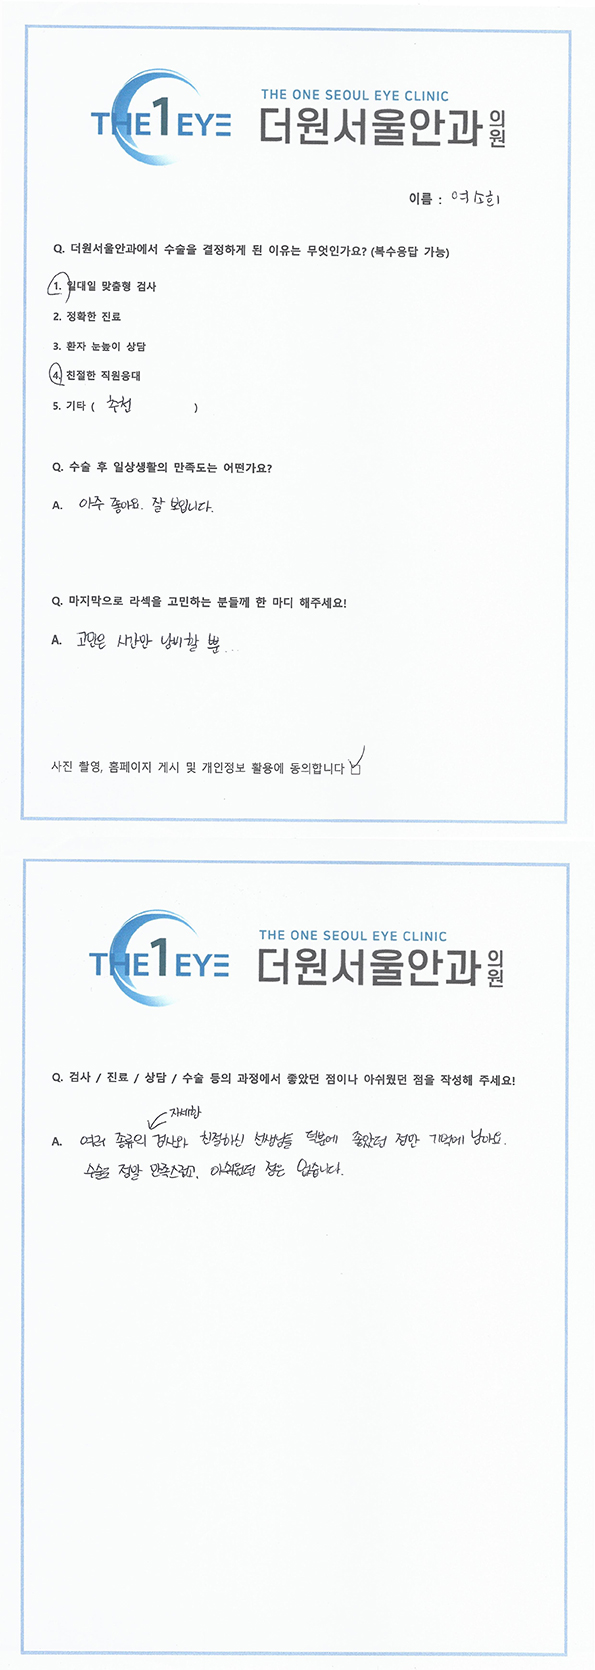 THE 1 EYE
THE ONE SEOUL EYE CLINIC
더원서울안과의원
이름 : 여소희
Q. 더원서울안과에서 수술을 결정하게 된 이유는 무엇인가요? (복수응답 가능)
1. 일대일 맞춤형 검사
2. 정확한 진료
3. 환자 눈높이 상담
4. 친절한 직원응대
5. 기타 ( 추천 )
Q. 수술 후 일상생활의 만족도는 어떤가요?
A. 아주 좋아요. 잘 보입니다.
Q. 마지막으로 라섹을 고민하는 분들께 한 마디 해주세요!
A. 고민은 시간만 낭비할 뿐...
사진 촬영, 홈페이지 게시 및 개인정보 활용에 동의합니다
THE 1 EYE
THE ONE SEOUL EYE CLINIC
더원서울안과의원
Q. 검사 / 진료 / 상담 / 수술 등의 과정에서 좋았던 점이나 아쉬웠던 점을 작성해 주세요!
자세한
A. 여러 종류의 검사와 친절하신 선생님들 덕분에 좋았던 점만 기억에 남아요.
수술도 정말 만족스럽고, 아쉬웠던 점은 없습니다.